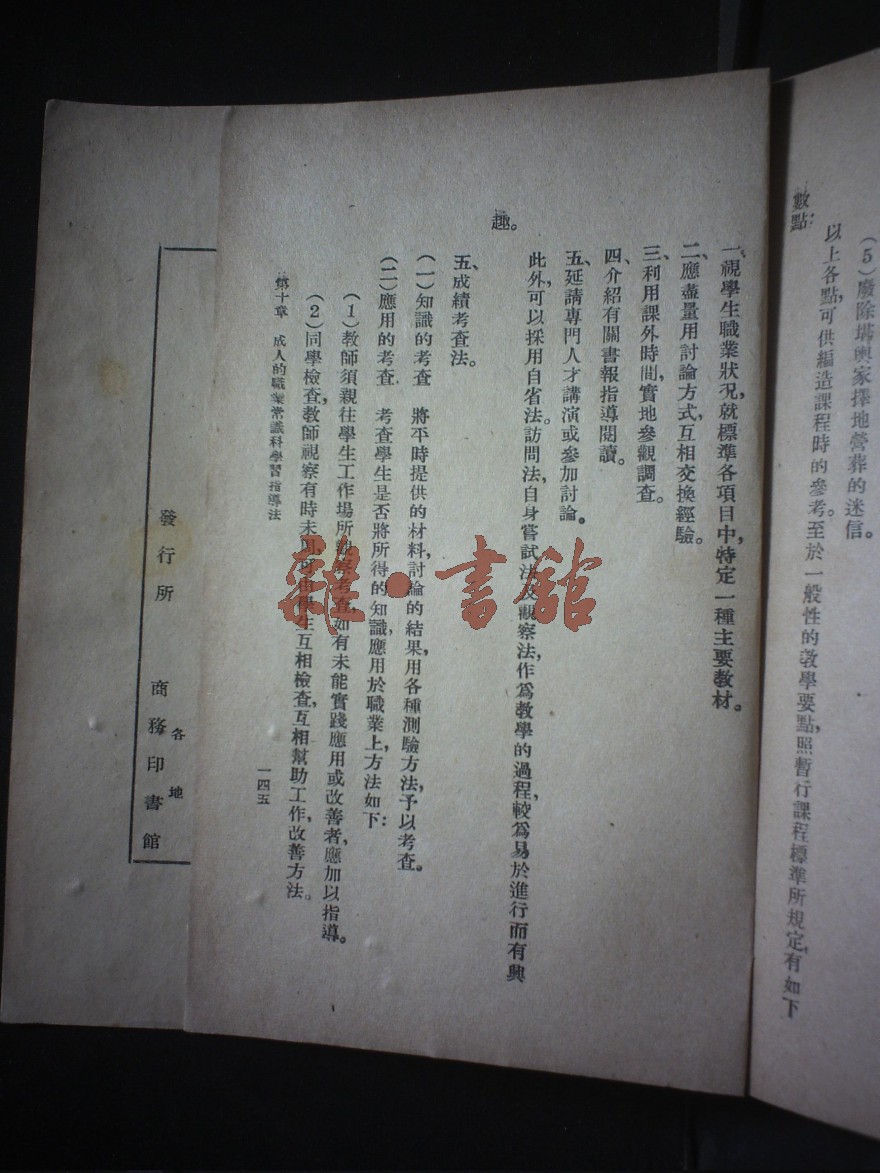 (5)廢除堪輿家擇地營葬的迷信。
以上各點,可供編造課程時的參考。至於一般性的教學要點,照暫行課程標準所規定,有如下
數點:
一、視學生職業狀況,就標準各項目中,特定一種主要教材。
二、應盡量用討論方式,互相交換經驗。
三、利用課外時間,實地參觀調查。
四、介紹有關書報指導閱讀。
五、延請專門人才講演或參加討論。
此外可以採用自省法。訪問法,自身嘗試法及觀察法,作爲教學的過程,較爲易於進行而有興
趣。
五、成績考查法。
(一)知識的考查 將平時提供的材料,討論的結果,用各種測驗方法,予以考查。
(二)應用的考查 考查學生是否將所得的知識,應用於職業上,方法如下:
(1)教師須親往學生工作場所觀察考查,如有未能實踐應用或改善者,應加以指導。
(2)同學檢查,教師視察有時未周,可由學生互相檢查,互相幫助工作,改善方法。
第十章 成人的職業常識科學習指導法
一四五
發行所 各地
商務印書館
雜·書館